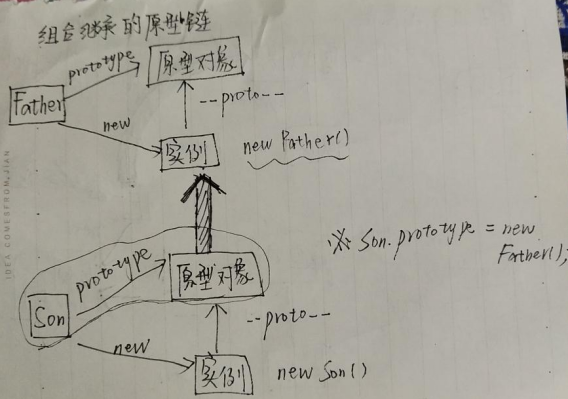 组合继承的原型链
prototype
原型对象
Father
--proto--
new
实例
new Father()
IDEA COMESFROM.JIAN
※ Son.prototype = new
Father();
prototype
原型对象
Son
--proto--
new
实例
new Son()